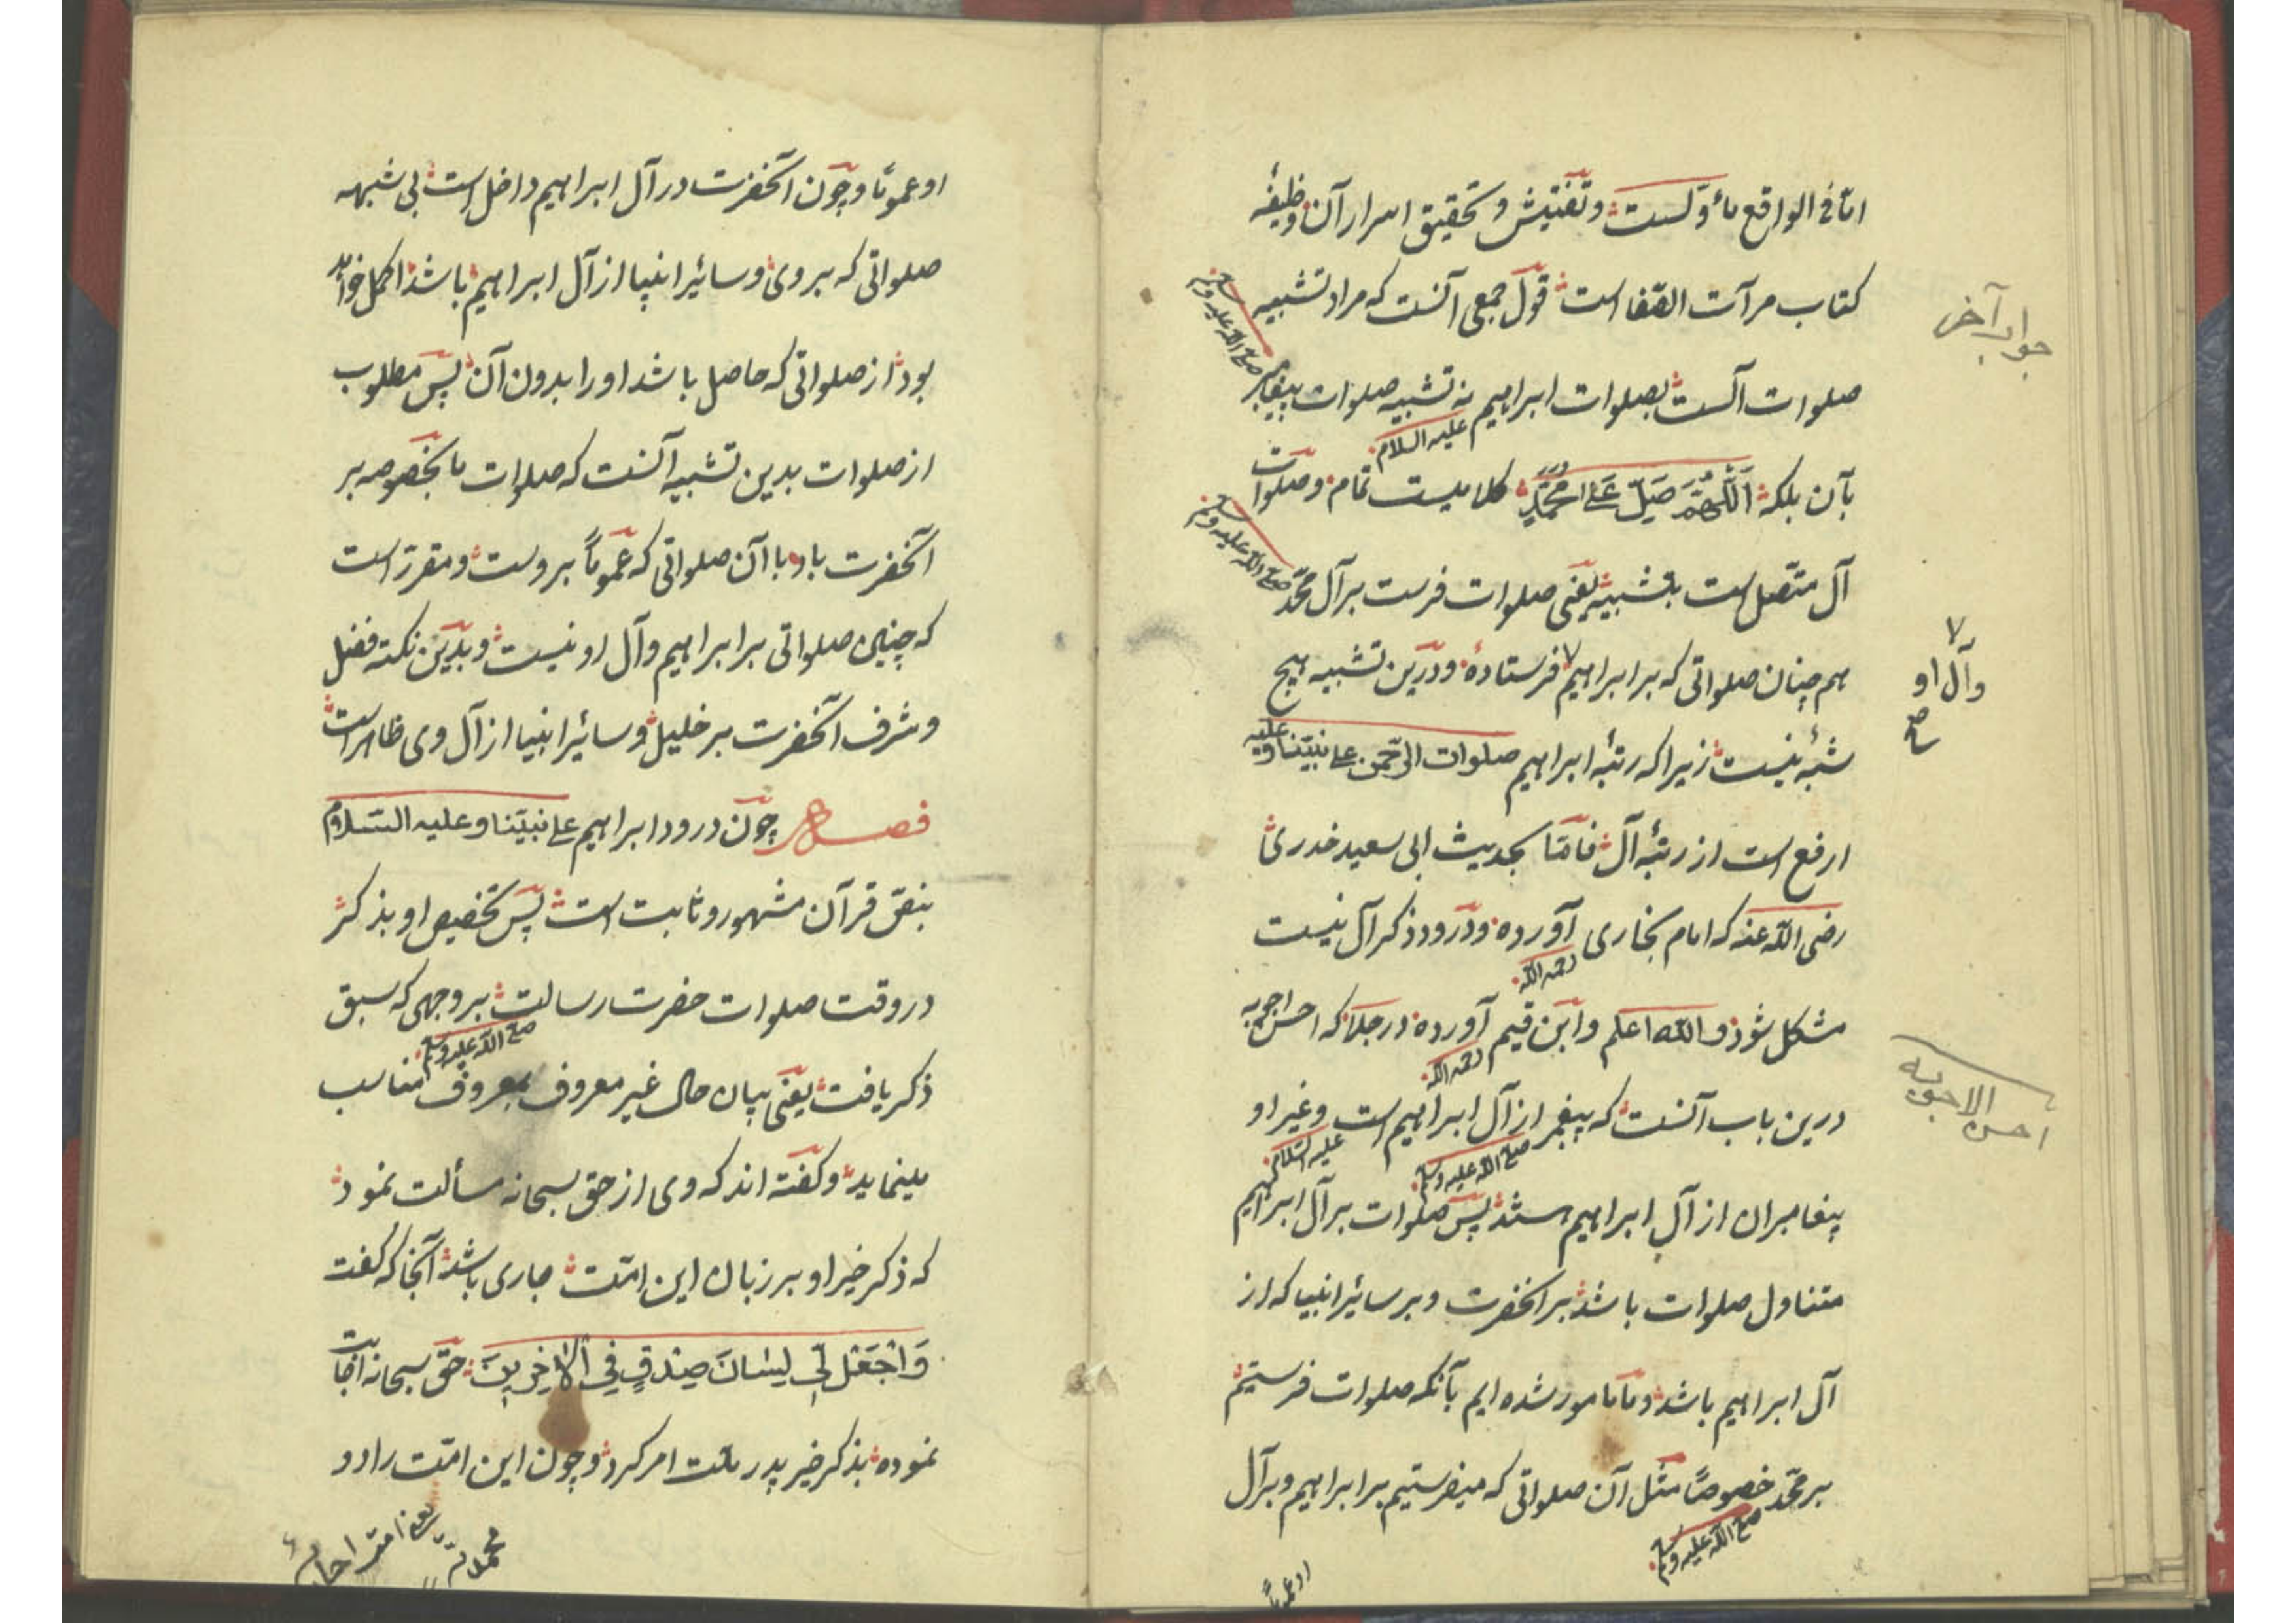 اما فی الواقع مأولست و تفتیش و تحقیق اسرار آن وظیفهٔ
کتاب مرآت الصفا است قول جمعی آنست که مراد تشبیه
صلوات آلست بصلوات ابراهیم علیه السلام نه تشبیه صلوات پیغامبر صلی الله علیه وسلم
بآن بلکه اَللّٰهُمَّ صَلِّ عَلیٰ مُحَمَّدٍ کلامیست تمام و صلوات
آل متصل است بتشبیه یعنی صلوات فرست بر آل محمد صلی الله علیه وسلم
هم چنان صلواتی که بر ابراهیم فرستادهٔ و درین تشبیه هیچ
شبهٔ نیست زیرا که رتبهٔ ابراهیم صلوات الرحمن علی نبینا و علیه
ارفع است از رتبهٔ آل فاما بحدیث ابی سعید خدری
رضی الله عنه که امام بخاری رحمه الله آورده و درود ذکر آل نیست
مشکل شود والله اعلم و ابن قیم رحمه الله آورده در جلا که احسن اجوبه
درین باب آنست که پیغمبر صلی الله علیه وسلم از آل ابراهیم است علیه السلام و غیر او
پیغامبران از آل ابراهیم هستند پس صلوات بر آل ابراهیم
متناول صلوات باشد بر آنحضرت و بر سائر انبیا که از
آل ابراهیم باشد و ما مامور شده ایم بآنکه صلوات فرستیم
بر محمد صلی الله علیه وسلم خصوصًا مثل آن صلواتی که میفرستیم بر ابراهیم و بر آل
او عموماً
جواب آخر
وآل او
صح
احسن الاجوبه
او عمومًا و چون آنحضرت در آل ابراهیم داخل است بی شبهه
صلواتی که بر وی و سائر انبیا از آل ابراهیم باشد اکمل خواهد
بود از صلواتی که حاصل باشد او را بدون آن پس مطلوب
از صلوات بدین تشبیه آنست که صلوات ما بخصوصه بر
آنحضرت باد با آن صلواتی که عمومًا بروست و مقرر است
که چنین صلواتی بر ابراهیم و آل او نیست و بدین نکته فضل
و شرف آنحضرت بر خلیل و سائر انبیا از آل وی ظاهر است
فصل چون درود ابراهیم علی نبینا و علیه السلام
بنص قرآن مشهور و ثابت است پس تخصیص او بذکر
در وقت صلوات حضرت رسالت صلی الله علیه وسلم بر وجهی که سبق
ذکر یافت یعنی بیان حال غیر معروف بمعروف مناسب
مینماید و گفته اند که وی از حق سبحانه مسألت نمود
که ذکر خیر او بر زبان این امت جاری باشد آنجا که گفت
وَاجْعَلْ لِّی لِسَانَ صِدْقٍ فِی الْاٰخِرِینَ حق سبحانه اجابت
نموده بذکر خیر پدر ملت امر کرد و چون این امت را دو